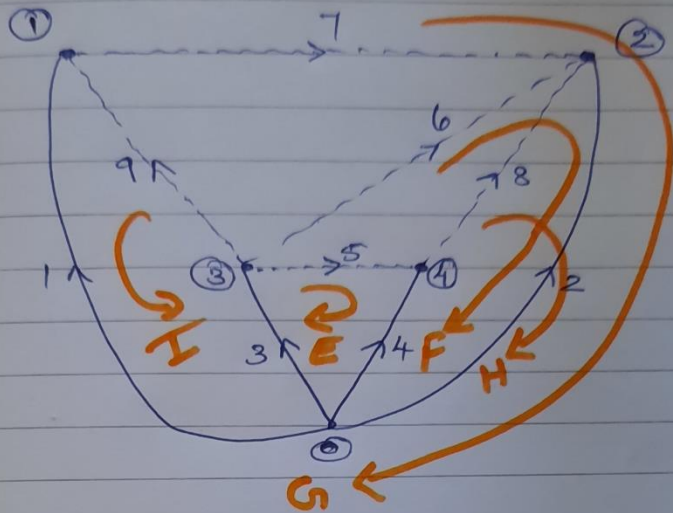 1 7 2
6
9 8
3 5 4
1 2
I 3 E 4 F H
0
G